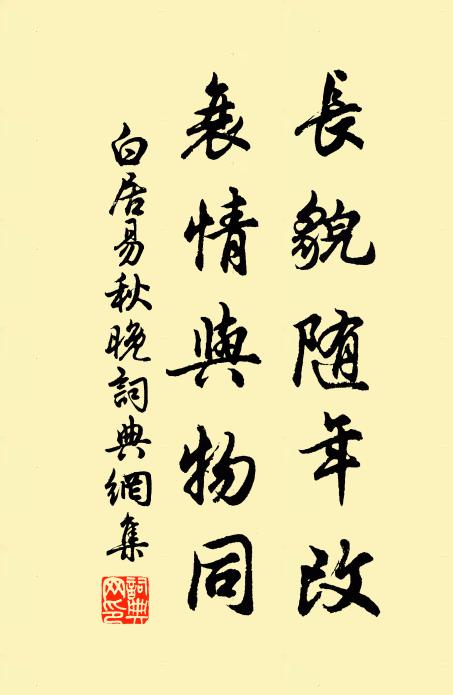 長貌随年改
衰情與物同
白居易秋晚詞典網集
詞典网印